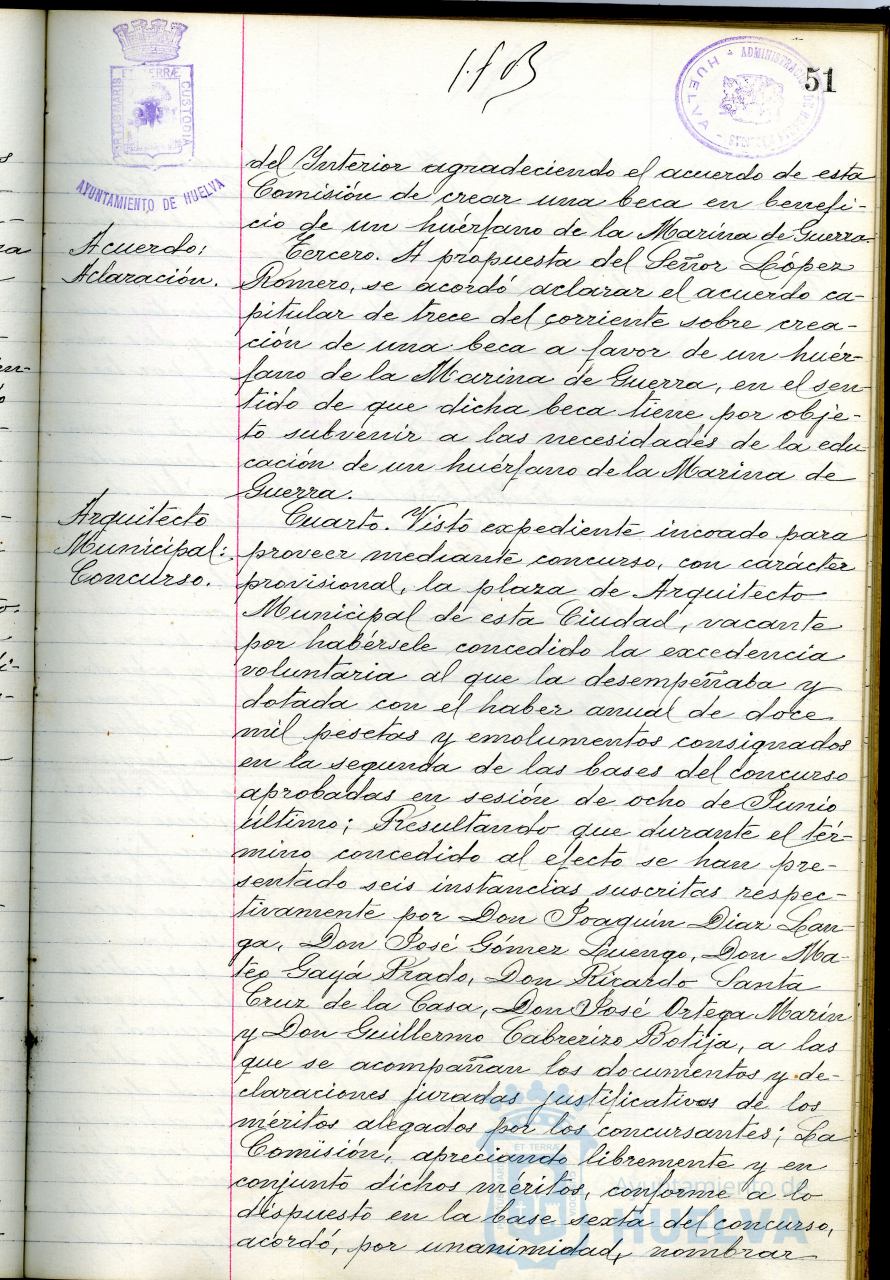 51
PORTUS MARIS ET TERRÆ CUSTODIA
AYUNTAMIENTO DE HUELVA
HUELVA
del Interior agradeciendo el acuerdo de esta
Comisión de crear una beca en benefi-
cio de un huérfano de la Marina de Guerra.
Acuerdo:
Aclaración.
Tercero. A propuesta del Señor López
Romero, se acordó aclarar el acuerdo ca-
pitular de trece del corriente sobre crea-
ción de una beca a favor de un huér-
fano de la Marina de Guerra, en el sen-
tido de que dicha beca tiene por obje-
to subvenir a las necesidades de la edu-
cación de un huérfano de la Marina de
Guerra.
Arquitecto
Municipal:
Concurso.
Cuarto. Visto expediente incoado para
proveer mediante concurso, con carácter
provisional, la plaza de Arquitecto
Municipal de esta Ciudad, vacante
por habérsele concedido la excedencia
voluntaria al que la desempeñaba y
dotada con el haber anual de doce
mil pesetas y emolumentos consignados
en la segunda de las bases del concurso
aprobadas en sesión de ocho de Junio
último; Resultando que durante el tér-
mino concedido al efecto se han pre-
sentado seis instancias suscritas respec-
tivamente por Don Joaquín Díaz Lan-
ga, Don José Gómez Luengo, Don Ma-
teo Gayá Prado, Don Ricardo Santa
Cruz de la Casa, Don José Ortega Marín
y Don Guillermo Cabrerizo Botija, a las
que se acompañan los documentos y de-
claraciones juradas justificativos de los
méritos alegados por los concursantes; La
Comisión, apreciando libremente y en
conjunto dichos méritos, conforme a lo
dispuesto en la base sexta del concurso,
acordó, por unanimidad, nombrar
Ayuntamiento de
HUELVA